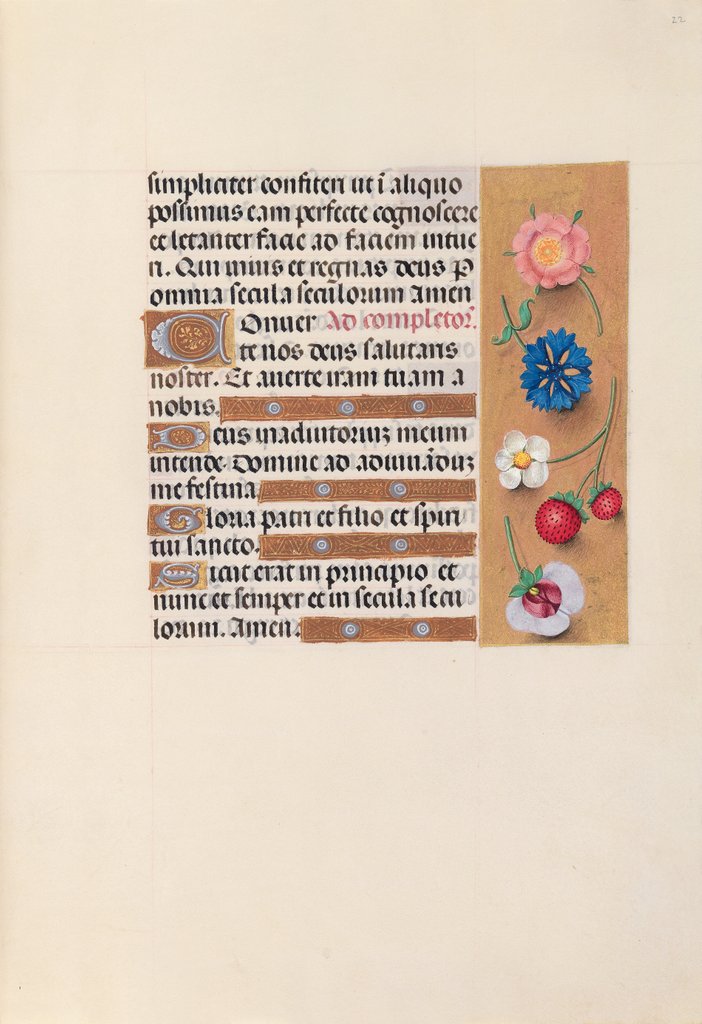 22
simpliciter confiteri ut ī aliquo
possimus eam perfecte cognoscere
et letanter facie ad faciem intue
ri. Qui vivis et regnas deus P
omnia secula seculorum Amen
Onver Ad completor̄.
te nos deus salutaris
noster. Et averte iram tuam a
nobis.
Deus in adiutoriuȝ meum
intende. Domine ad adiuuāduȝ
me festina
Gloria patri et filio et spiri
tui sancto.
Sicut erat in principio et
nunc et semper et in secula secu
lorum. Amen.